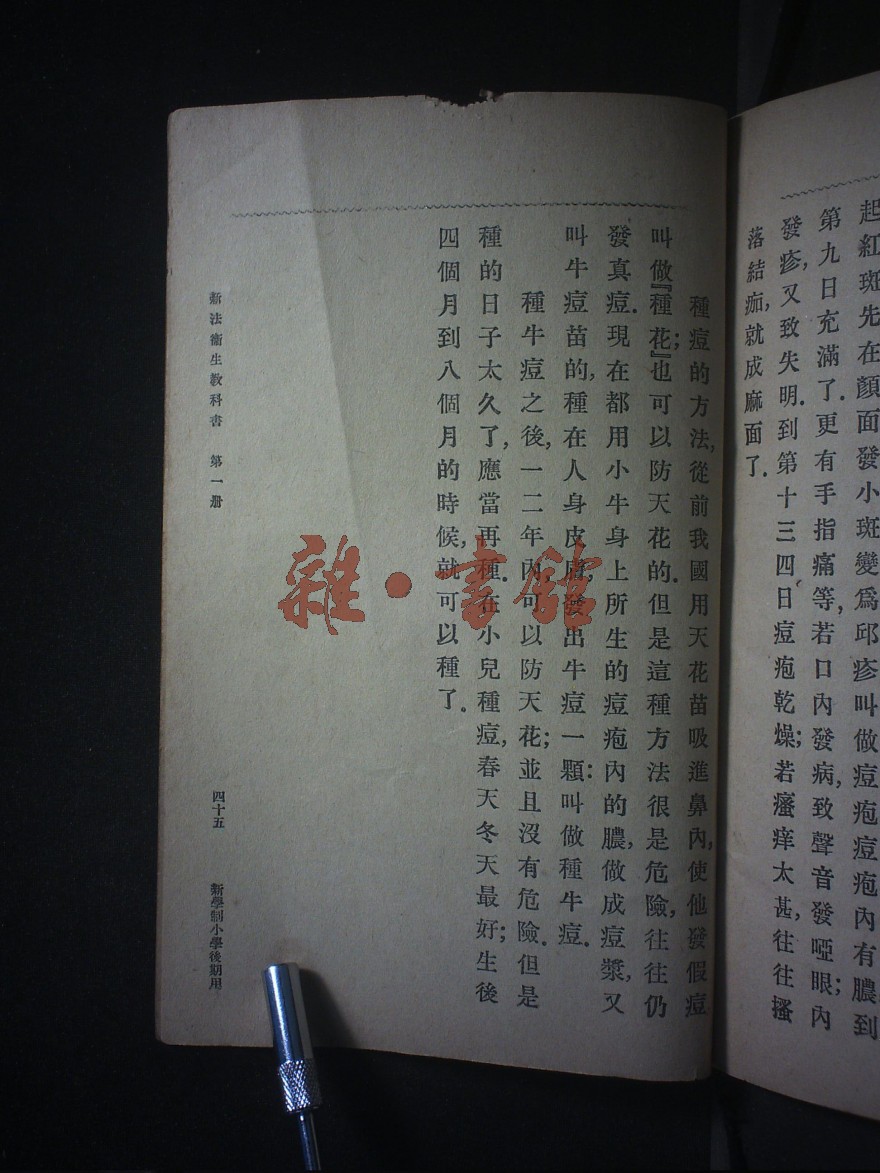 起紅斑先在顏面發小斑變爲邱疹叫做痘疱痘疱內有膿到
第九日充滿了.更有手指痛等,若口內發病,致聲音發啞;眼內
發疹,又致失明.到第十三四日痘疱乾燥;若癢痒太甚,往往搔
落結痂,就成麻面了.
種痘的方法,從前我國用天花苗吸進鼻內,使他發假痘
叫做『種花』;也可以防天花的.但是這種方法很是危險,往往仍
發真痘.現在都用小牛身上所生的痘疱內的膿,做成痘漿,又
叫牛痘苗的,種在人身皮膚,發出牛痘一顆:叫做種牛痘.
種牛痘之後,一二年內可以防天花;並且沒有危險.但是
種的日子太久了,應當再種.在小兒種痘,春天冬天最好;生後
四個月到八個月的時候,就可以種了.
新法衞生教科書 第一册
四十五
新學制小學後期用
雜·書館